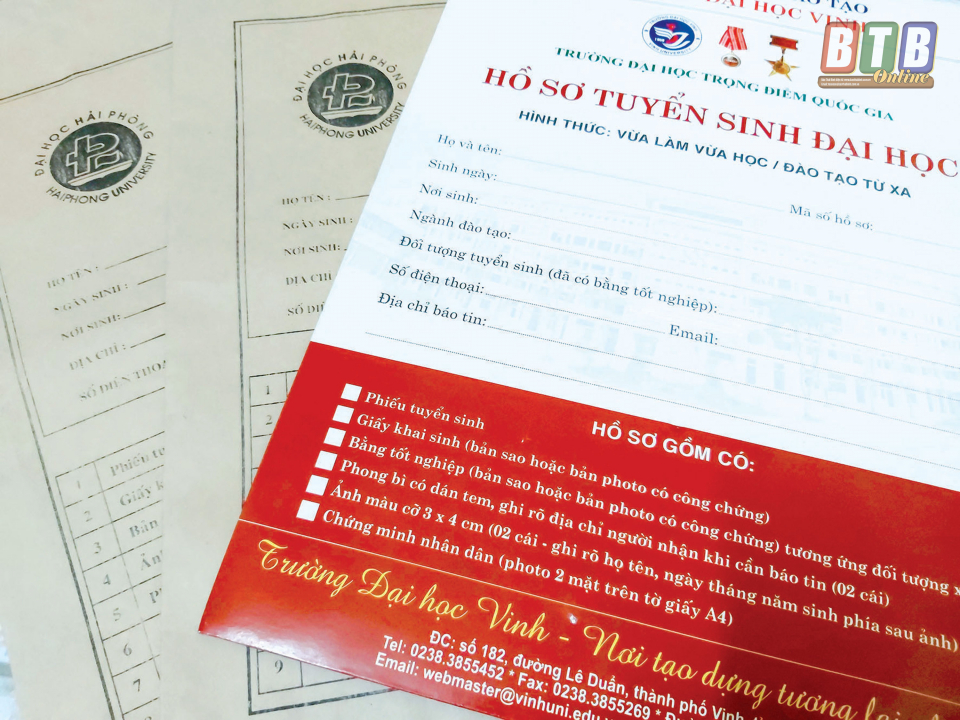 ĐẠI HỌC HẢI PHÒNG
HAIPHONG UNIVERSITY
HỌ TÊN :
NGÀY SINH :
NƠI SINH:
ĐỊA CHỈ :
SỐ ĐIỆN THOẠ
1 Phiếu t
2 Giấy k
3 Bản
4 Ản
5
6
7
ĐẠI HỌC HẢI PHÒNG
HAIPHONG UNIVERSITY
HỌ TÊN :
NGÀY SINH :
NƠI SINH:
ĐỊA CHỈ
SỐ ĐI
1
2
9
TẠO
ĐẠI HỌC VINH
BTB
Online
TRƯỜNG ĐẠI HỌC TRỌNG ĐIỂM QUỐC GIA
HỒ SƠ TUYỂN SINH ĐẠI HỌC
HÌNH THỨC: VỪA LÀM VỪA HỌC / ĐÀO TẠO TỪ XA
Họ và tên:
Mã số hồ sơ:
Sinh ngày:
Nơi sinh:
Ngành đào tạo:
Đối tượng tuyển sinh (đã có bằng tốt nghiệp):
Số điện thoại:
Email:
Địa chỉ báo tin:
HỒ SƠ GỒM CÓ:
Phiếu tuyển sinh
Giấy khai sinh (bản sao hoặc bản photo có công chứng)
Bằng tốt nghiệp (bản sao hoặc bản photo có công chứng) tương ứng đối tượng x
Phong bì có dán tem, ghi rõ địa chỉ người nhận khi cần báo tin (02 cái)
Ảnh màu cỡ 3 x 4 cm (02 cái - ghi rõ họ tên, ngày tháng năm sinh phía sau ảnh)
Chứng minh nhân dân (photo 2 mặt trên tờ giấy A4)
Trường Đại học Vinh - Nơi tạo dựng tương lai
ĐC: số 182, đường Lê Duẩn, thành phố Vinh
Tel: 0238.3855452 * Fax: 0238.3855269 *
Email: webmaster@vinhuni.edu